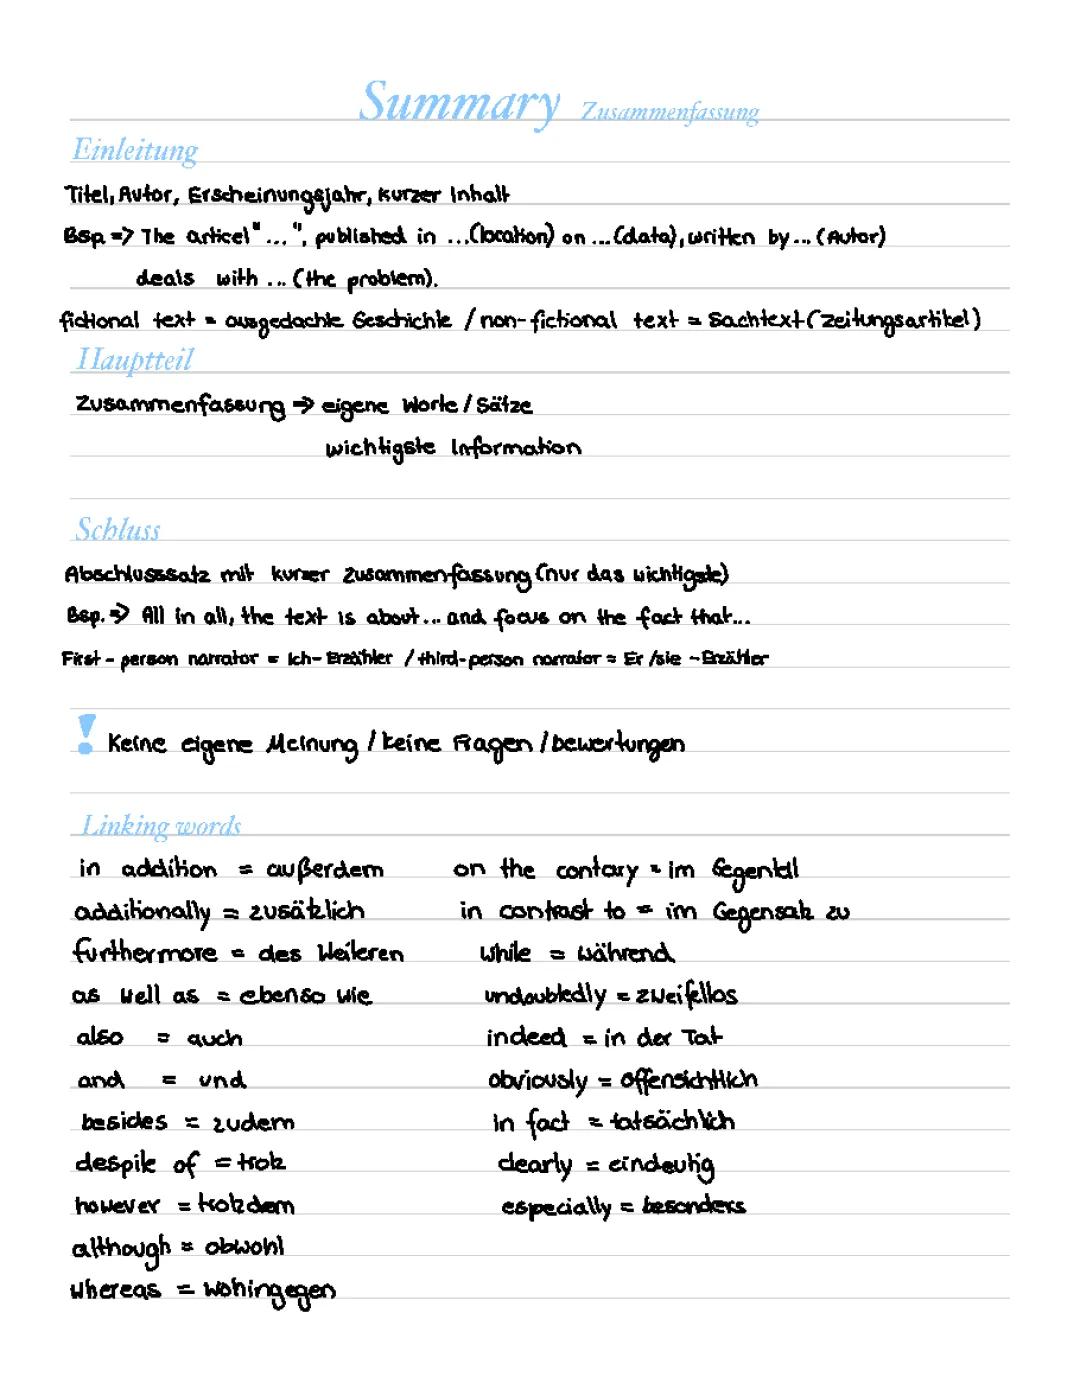 Summary Zusammenfassung
Einleitung
Titel, Autor, Erscheinungsjahr, kurzer Inhalt
Bsp => The articel "...", published in ...(location) on ...(data), written by ... (Autor)
deals with ... (the problem).
fictional text = ausgedachte Geschichte / non-fictional text = Sachtext (Zeitungsartikel)
Hauptteil
Zusammenfassung => eigene Worte / Sätze
wichtigste Information
Schluss
Abschlusssatz mit kurzer Zusammenfassung (nur das wichtigste)
Bsp. => All in all, the text is about ... and focus on the fact that...
First-person narrator = Ich-Erzähler / third-person narrator = Er/sie-Erzähler
! Keine eigene Meinung / keine Fragen / bewertungen
Linking words
in addition = außerdem on the contary = im Gegenteil
additionally = zusätzlich in contrast to = im Gegensatz zu
furthermore = des Weiteren while = während
as well as = ebenso wie undoubtedly = zweifellos
also = auch indeed = in der Tat
and = und obviously = offensichtlich
besides = zudem in fact = tatsächlich
despite of = trotz clearly = eindeutig
however = trotzdem especially = besonders
although = obwohl
whereas = wohingegen